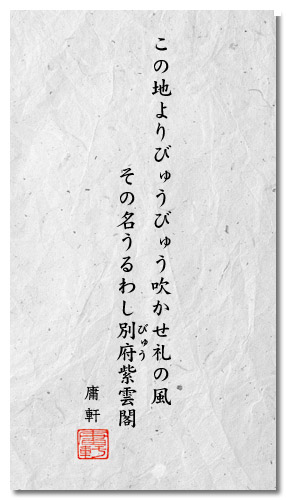 この地よりびゅうびゅう吹かせ礼の風
その名うるわし別府紫雲閣
びゅう
庸軒